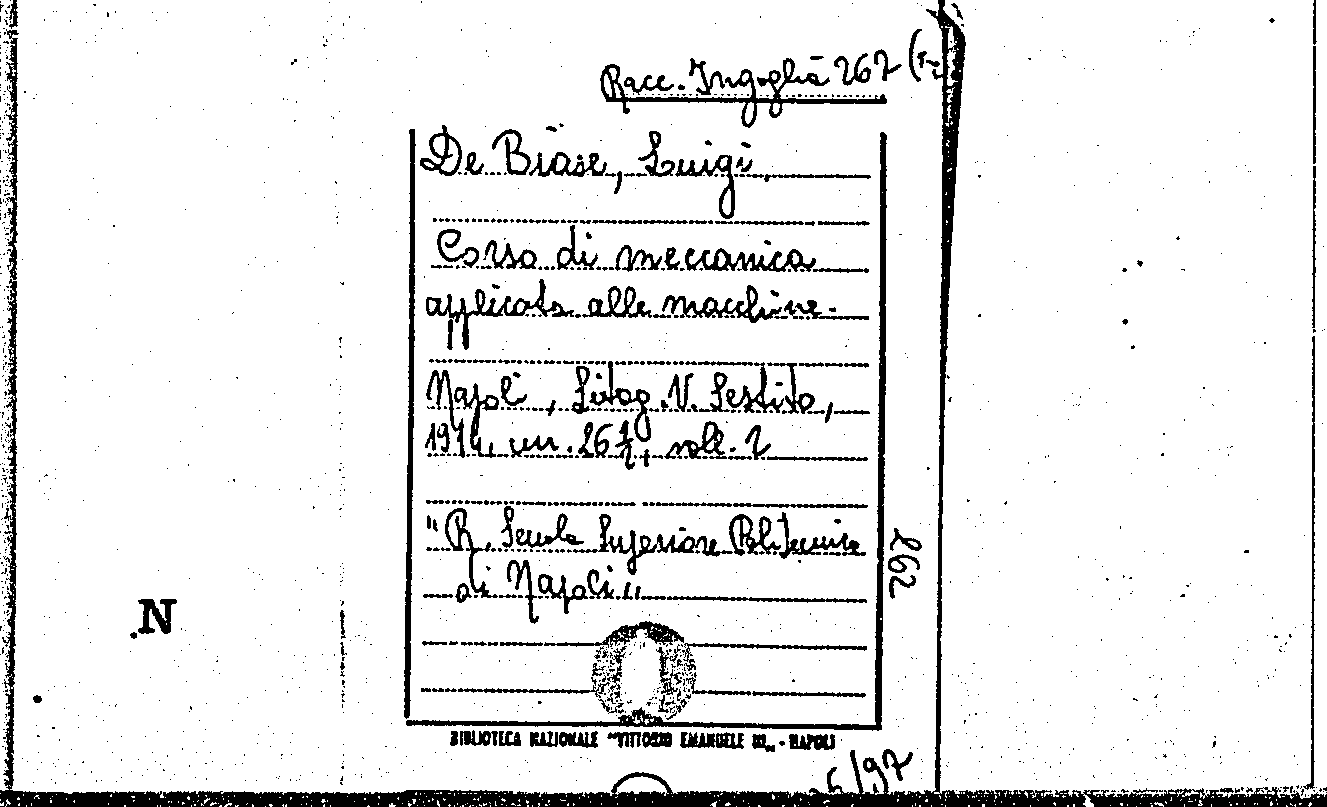 Racc. Ingoglia 267 (
De Biase, Luigi.
Corso di meccanica
applicata alle macchine.
Napoli, Litog. V. Sestito,
1914, voll. 2
"R. Scuola Superiore Politecnica
di Napoli"
262
.N
BIBLIOTECA NAZIONALE "VITTORIO EMANUELE III" - NAPOLI
6/97